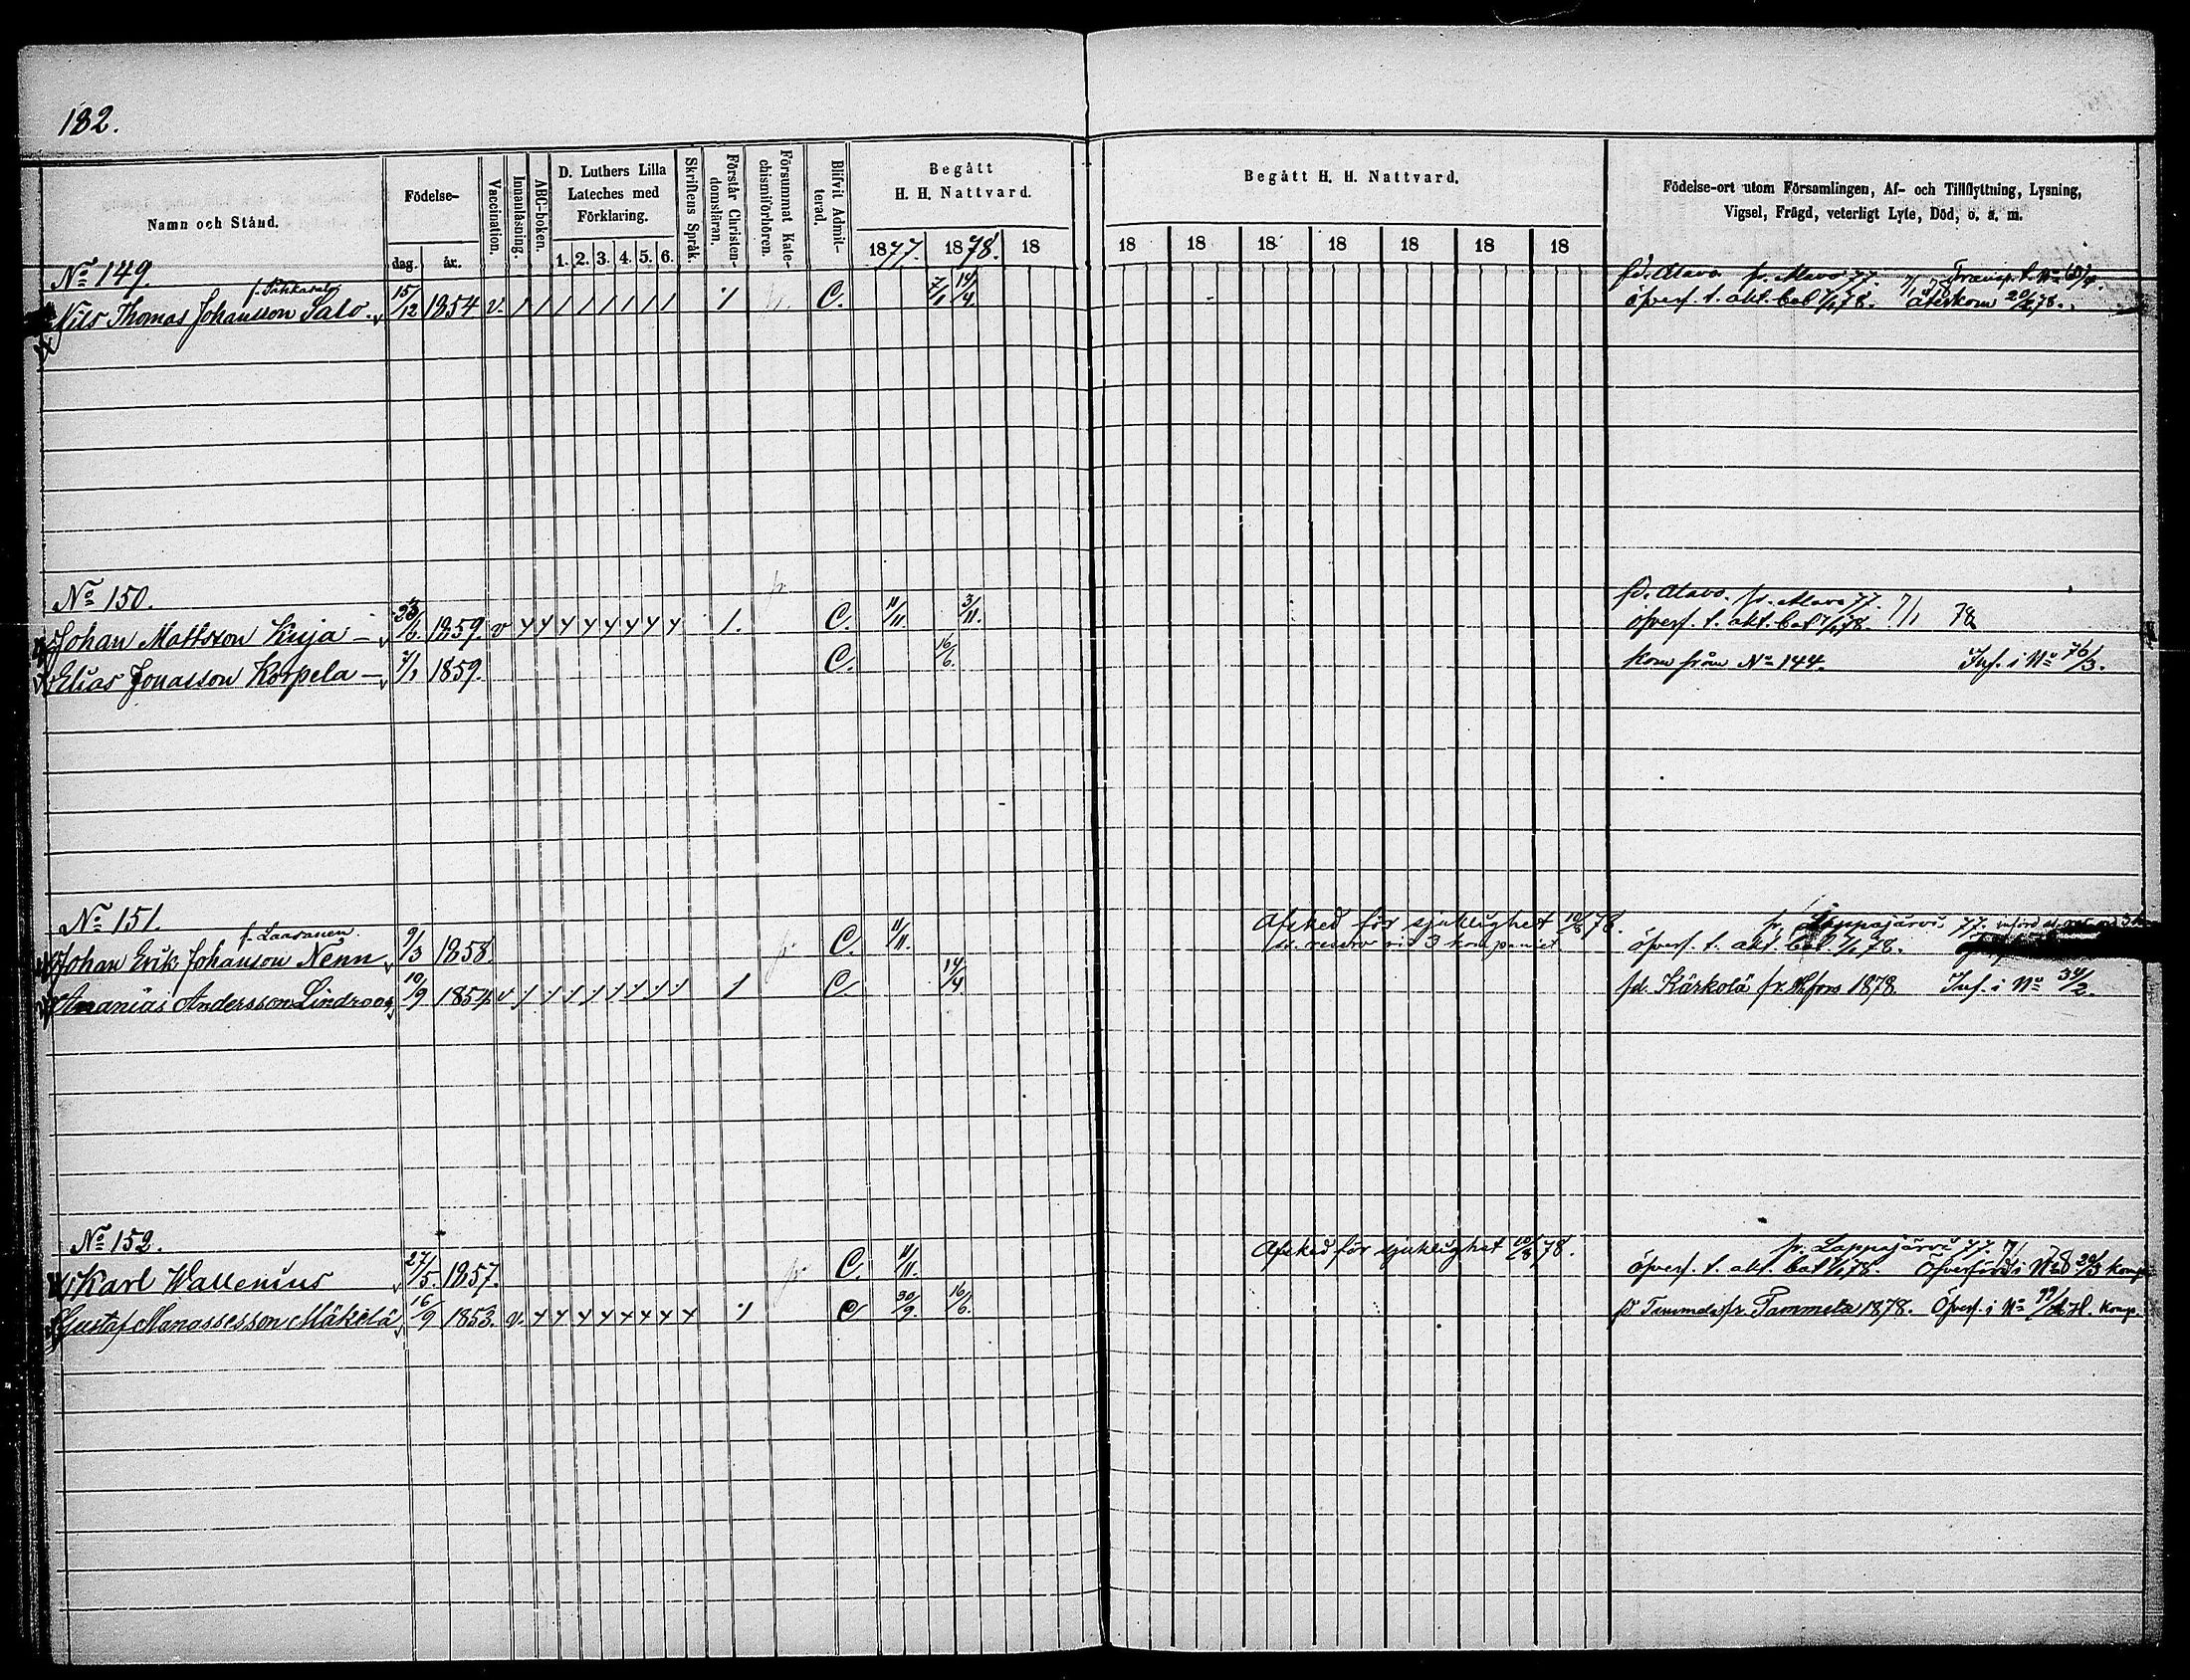 182.
Namn och Stånd.
Födelse-
dag. år.
Vaccination.
Innanläsning.
ABC-boken.
D. Luthers Lilla
Lateches med
Förklaring.
1. 2. 3. 4. 5. 6.
Skriftens Språk.
Förstår Christen-
domsläran.
Försummat Kate-
chismiförhören.
Blifvit Admit-
terad.
Begått
H. H. Nattvard.
1877. 1878. 18
Begått H. H. Nattvard.
18 18 18 18 18 18 18
Födelse-ort utom Församlingen, Af- och Tillflyttning, Lysning,
Vigsel, Frägd, veterligt Lyte, Död, o. a. m.
No 149.
Nils Thomas Johansson Salo. 15/12 1854 v. / / / / / / / / / C. 7/1 14/4
fd. Alavo fr. Alavo 77. 7/1 78
öfverf. t. akt. bat 7/1 78. återkom
No 150.
Johan Mattsson Kuja 1859. v 1. C. 11/11 3/11
fd. Alavo. fr. Alavo 77.
öfverf. t. akt. bat 7/1 78. 7/1 78
Elias Jonasson Korpela 7/1 1859. C. 16/6.
kom från No 144. Inf. i No 76/3.
No 151.
f. Laasanen.
Johan Erik Johanson Nenn 9/3 1858. C. 11/11.
Afsked för sjuklighet 10/8 78.
reserv vid 3 kompaniet
fr. Lappajärvi 77.
öfverf. t. akt. bat. 7/1 78.
Ananias Andersson Lindroos 10/9 1854 v / / / / / / / / / C. 14/4
fd. Kärkolä fr. Hfors 1878. Inf. i No 34/2.
No 152.
Karl Wallenius 27/5. 1857. C. 11/11.
Afsked för sjuklighet 10/8 78.
fr. Lappajärvi 77. 7/1 78
öfverf. t. akt. bat 7/1 78. Öfverförd i No 20/3 komp.
Gustaf Manassesson Mäkelä 16/9 1853. v. / C 30/9. 16/6.
fr. Tammela 1878. Öfverf. i No Komp.